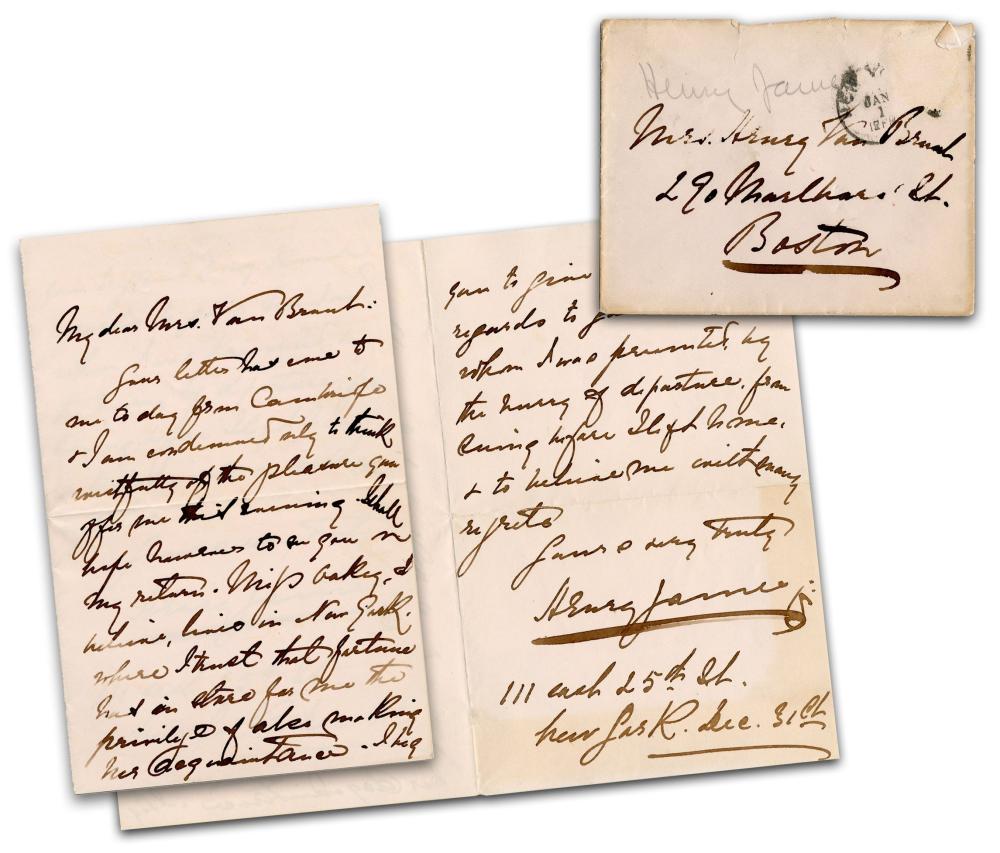 Henry James
NEW Y
JAN
1
12 PM
Mrs. Henry Van Brunt
290 Marlboro' St.
Boston
My dear Mrs. Van Brunt:
Your letter has come to
me to day from Cambridge
& I am condemned only to think
wistfully of the pleasure you
offer me this evening. I shall
hope however to see you on
my return. Miss Oakey, I
believe, lives in New York.
where I trust that fortune
has in store for me the
privilege of also making
her acquaintance. I beg
you to give
regards to
whom I was prevented by
the hurry of departure from
seeing before I left home,
& to believe me with many
regrets
Yours very truly
Henry James jr.
111 east 25th St.
New York. Dec. 31st